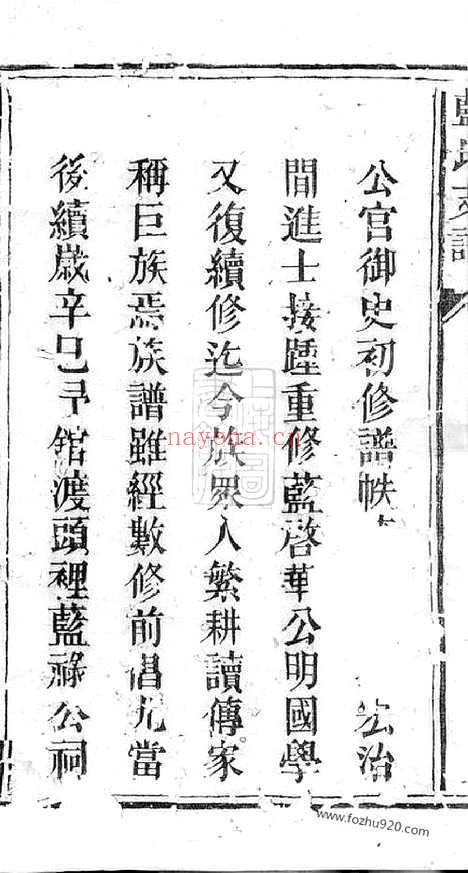 藍氏支譜
公官御史初修譜帙 宏治
間進士接踵重修藍啓華公明國學
又復續修迄今族眾人繁耕讀傳家
稱巨族焉族譜雖經數修前倡尤當
後續歲辛巳予館渡頭裡藍祿公祠
nayona.cn
www.fozhu920.com